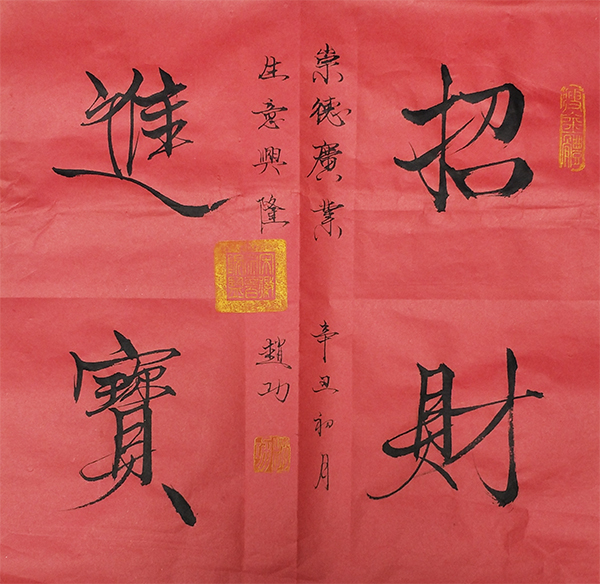 招財
進寶
崇德廣業
辛丑初月
生意興隆
趙功